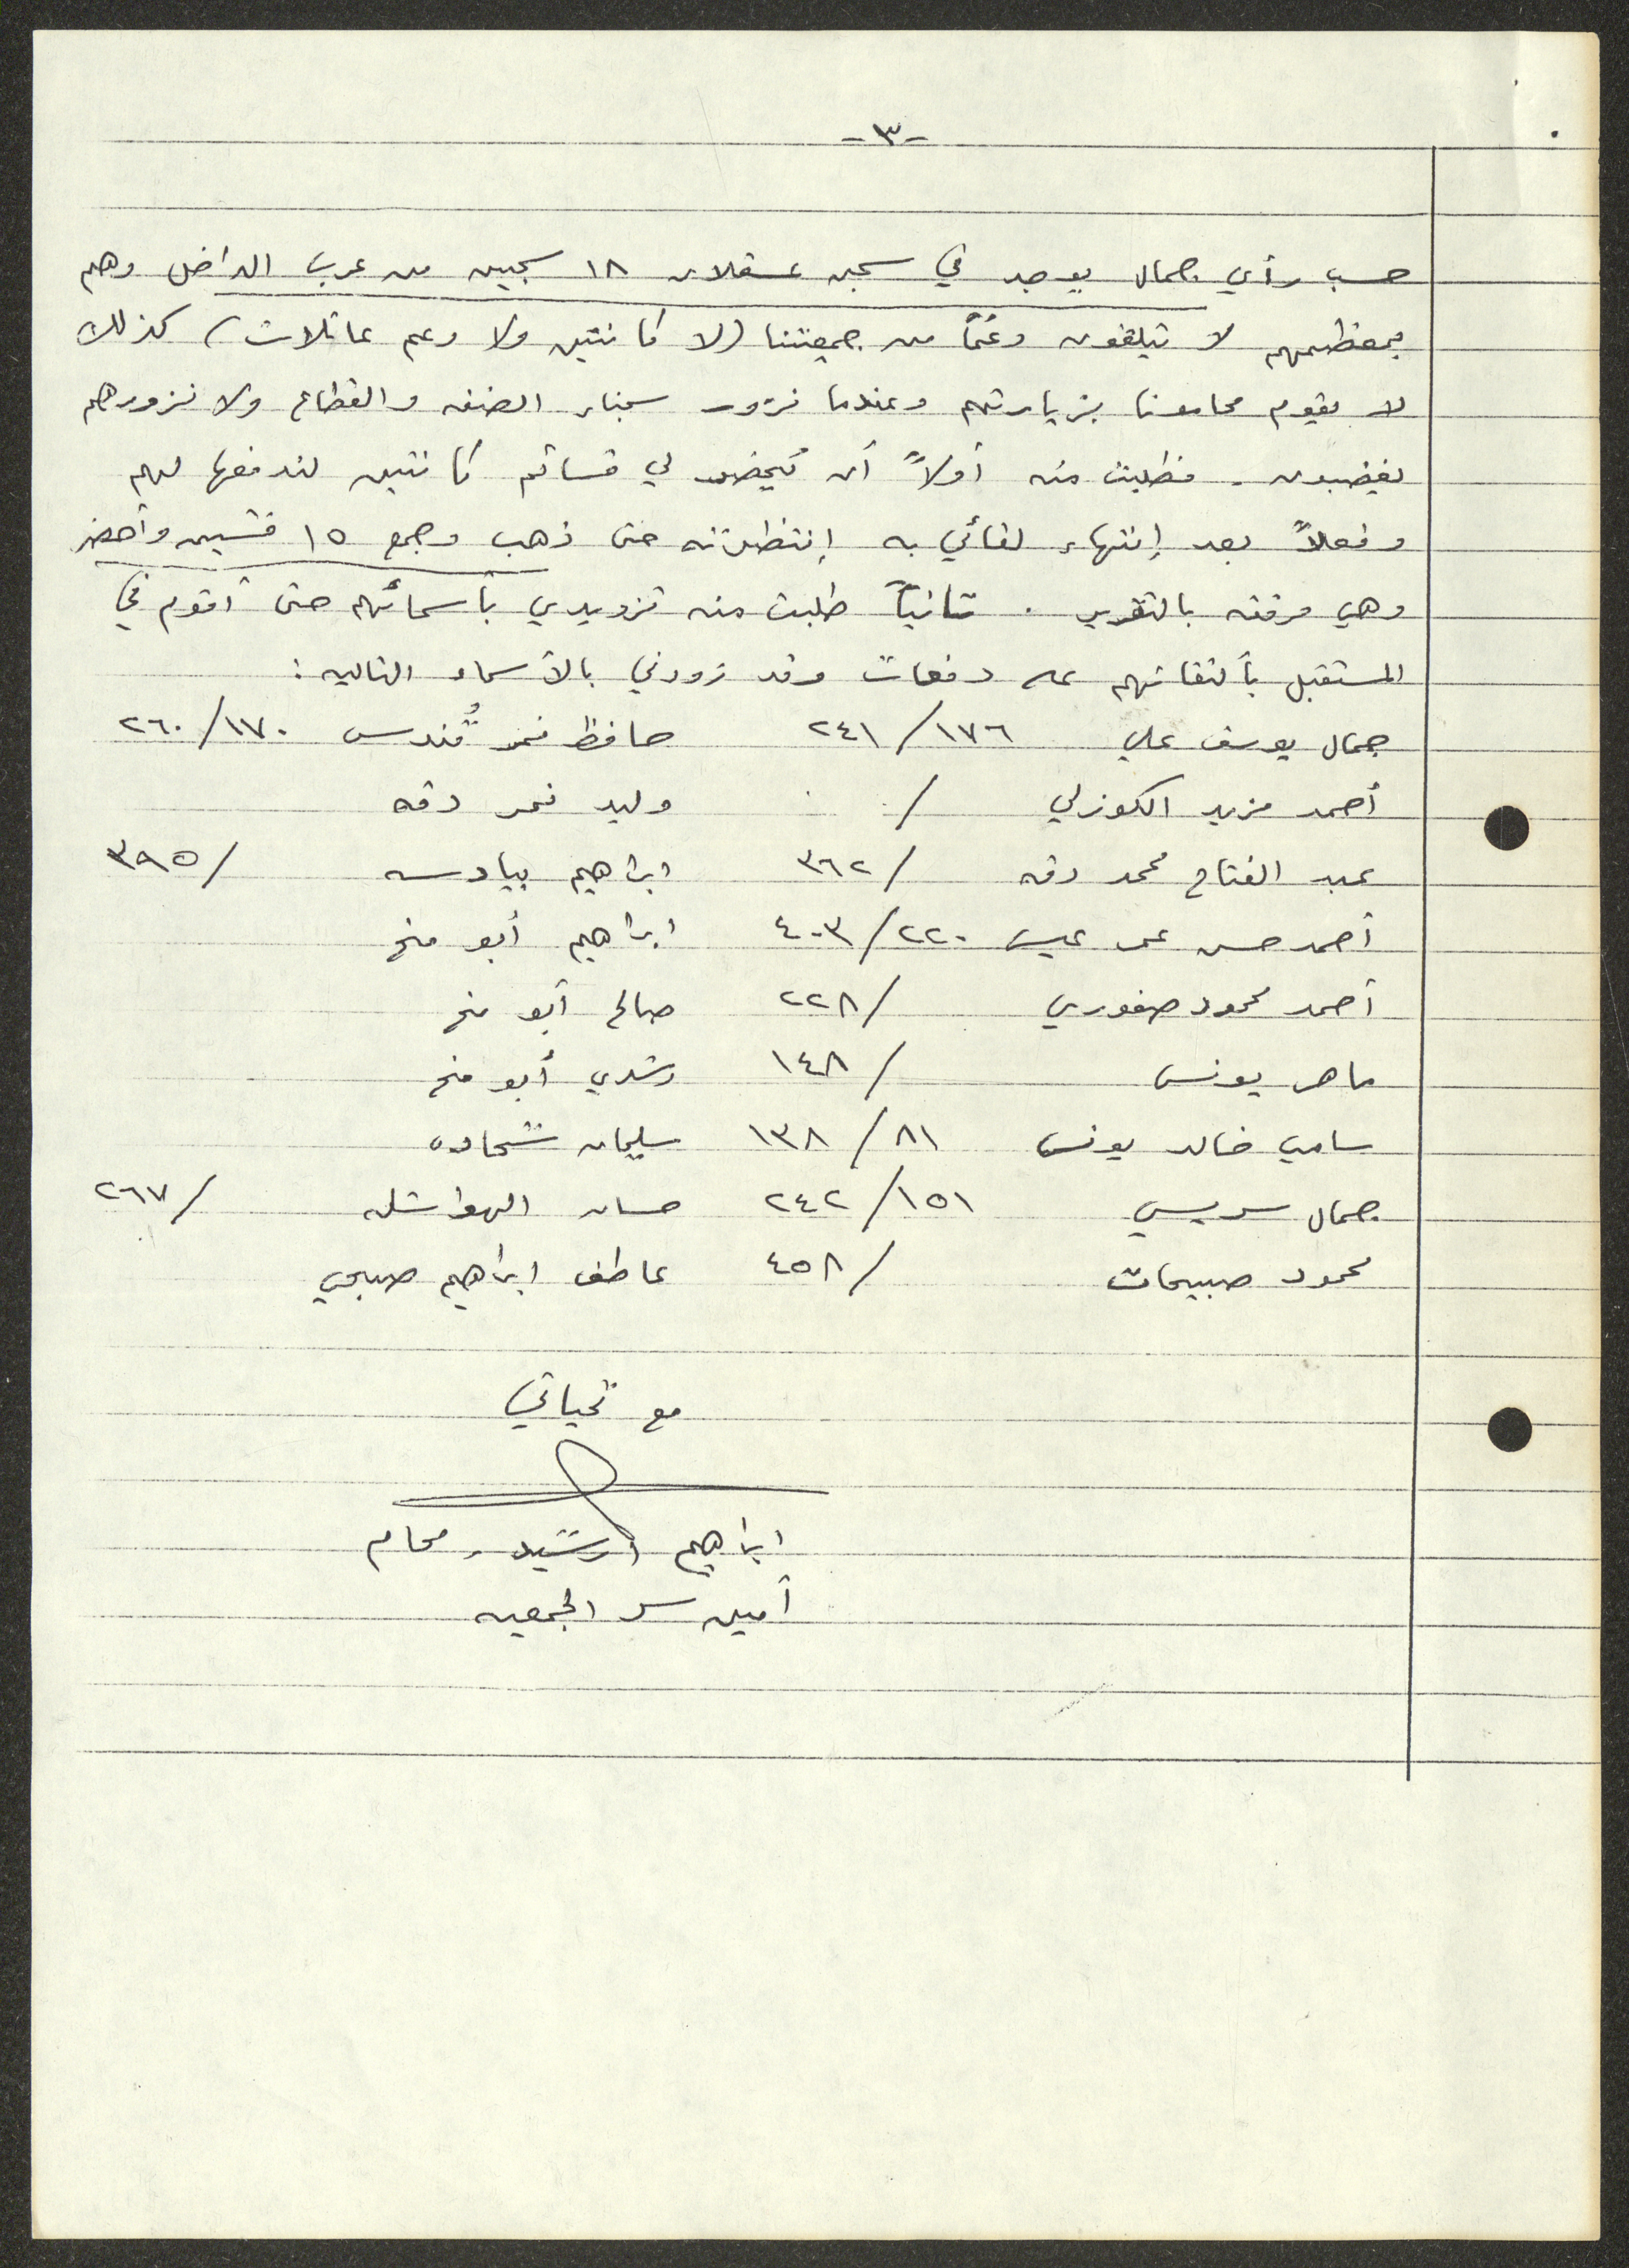 -٣-
حسب رأي جمال يوجد في سجن عسقلان ١٨ سجين من عرب الداخل وهم
بمعظمهم لا يتلقون دعمًا من جمعيتنا (لا كانتين ولا دعم عائلات) كذلك
لا يقوم محامونا بزيارتهم وعندما نزور سجناء الضفه والقطاع ولا نزورهم
يغضبون. فطلبت منه أولاً أن يُحضر لي قسائم كانتين لندفعها لهم
وفعلاً بعد إنتهاء لقائي به إنتظرته حتى ذهب وجمع ١٥ قسيمه وأحضر
وهي مرفقه بالتقرير. ثانياً طلبت منه تزويدي بأسمائهم حتى أقوم في
المستقبل بألتقائهم على دفعات وقد زودني بالأسماء التاليه:
جمال يوسف علي ١٧٦/٢٤١ حافظ نمر قُندس ١٧٠/٢٦٠
أحمد مزيد الكوزلي / وليد نمر دقه
عبد الفتاح محمد دقه /٣٦٢ ابراهيم بيادسه /٣٩٥
أحمد حسن عمر عيسى ٢٢٠/٤٠٣ ابراهيم أبو مخ
أحمد محمود صفوري /٢٢٨ صالح أبو مخ
ماهر يونس /١٤٨ رشدي أبو مخ
سامي خالد يونس ٨١/١٣٨ سليمان شحاده
جمال سريسي ١٥١/٢٤٢ حسان الهواشله /٢٦٧
محمود صبيحات /٤٥٨ عاطف ابراهيم صبيحي
مع تحياتي
ابراهيم ارشيد، محام
أمين سر الجمعيه